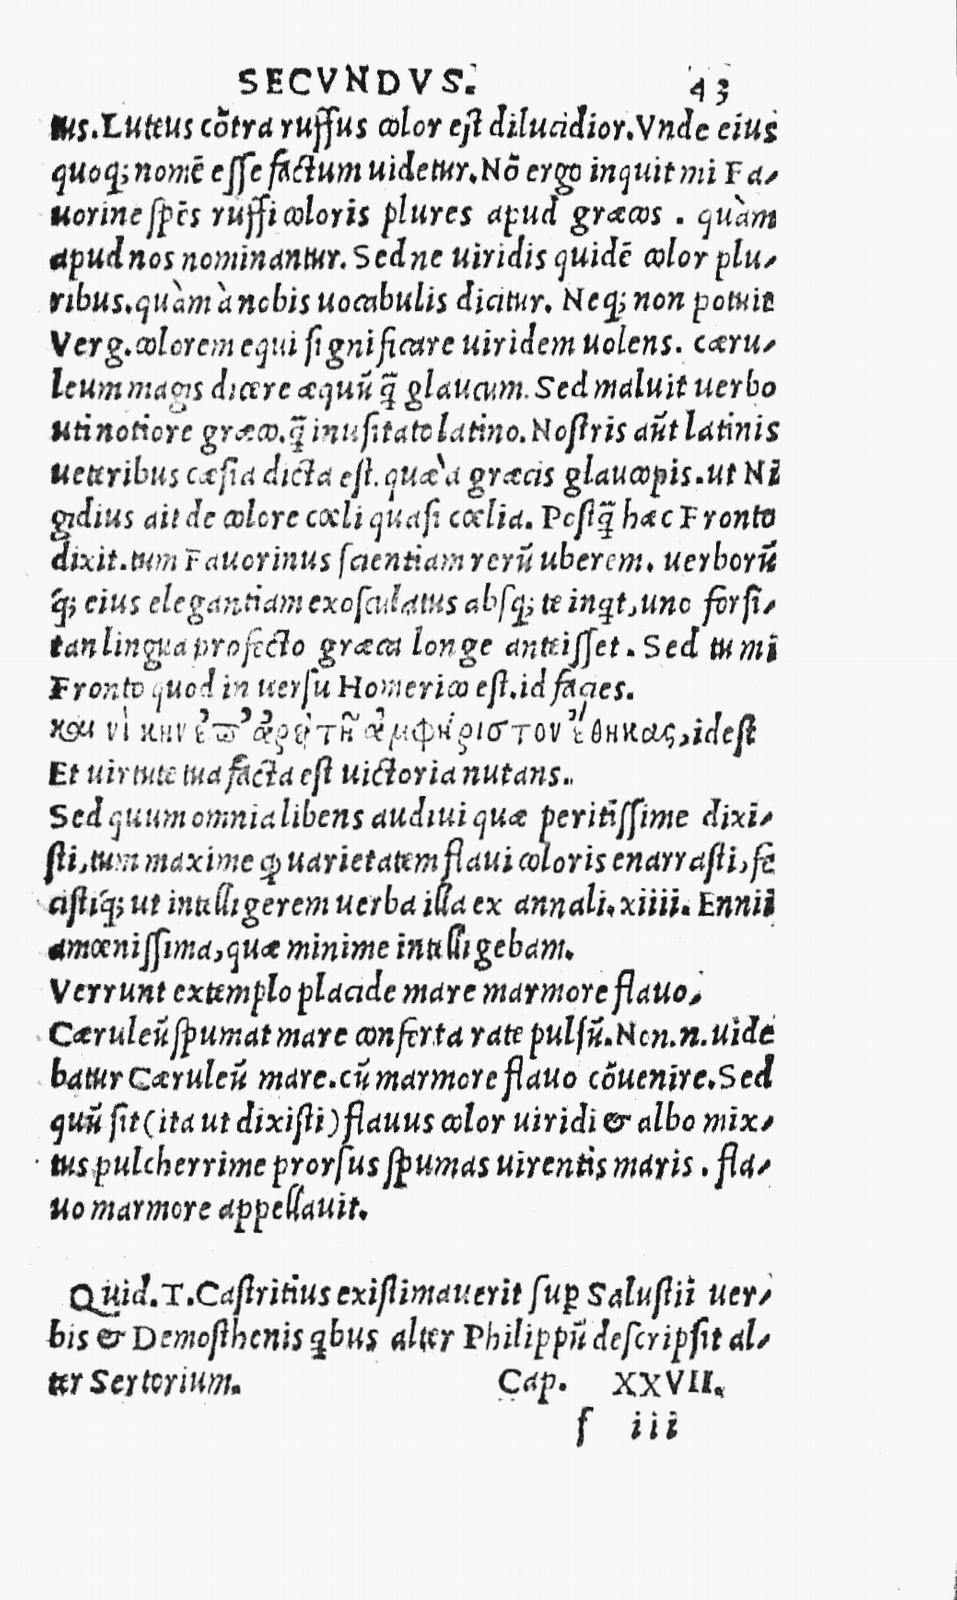 SECVNDVS. 43
tus. Luteus cõtra ruffus color est dilucidior. Vnde eius
quoq; nomẽ esse factum uidetur. Nõ ergo inquit mi Fa-
uorine spẽs ruffi coloris plures apud græcos . quàm
apud nos nominantur. Sed ne uiridis quidẽ color plu-
ribus. quàm à nobis uocabulis dicitur. Neq; non potuit
Verg. colorem equi significare uiridem uolens. cæru-
leum magis dicere æquũ q̃ glaucum. Sed maluit uerbo
uti notiore græco. q̃ inusitato latino. Nostris aũt latinis
ueteribus cæsia dicta est. quæ à græcis glaucopis. ut Ni
gidius ait de colore cœli quasi cœlia. Postq̃ hæc Fronto
dixit. tum Fauorinus scientiam rerũ uberem. uerborũ
q́; eius elegantiam exosculatus absq; te inqt, uno forsi-
tan lingua profecto græca longe anteisset. Sed tu mi
Fronto quod in uersu Homerico est. id facies.
και νὶ κην ἐπ' ἀρετῆ ἀμφήριστον ἔθηκας, idest
Et uirtute tua facta est uictoria nutans..
Sed quum omnia libens audiui quæ peritissime dixi-
sti, tum maxime ꝙ uarietatem flaui coloris enarrasti, fe
cistiq́; ut intelligerem uerba illa ex annali. xiiii. Ennii
amœnissima, quæ minime intelligebam.
Verrunt extemplo placide mare marmore flauo,
Cæruleũ spumat mare conferta rate pulsũ. Non. n. uide
batur Cæruleũ mare. cũ marmore flauo cõuenire. Sed
quũ sit (ita ut dixisti) flauus color uiridi & albo mix-
tus pulcherrime prorsus spumas uirentis maris . fla-
uo marmore appellauit.
Quid. T. Castritius existimauerit suꝑ Salustii uer-
bis & Demosthenis qbus alter Philippũ descripsit al-
ter Sertorium. Cap. XXVII.
f iii